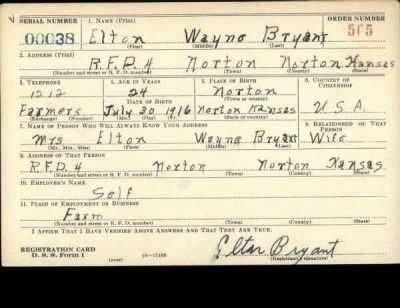 SERIAL NUMBER 1. NAME (Print) ORDER NUMBER
00038 Elton Wayne Bryant 565
(First) (Middle) (Last)
2. ADDRESS (Print)
R.F.D. 4 Norton Norton Kansas
(Number and street or R. F. D. number) (Town) (County) (State)
3. TELEPHONE 4. AGE IN YEARS 5. PLACE OF BIRTH 6. COUNTRY OF CITIZENSHIP
1212 24 Norton
DATE OF BIRTH (Town or county)
Farmers July 30 1916 Norton Kansas U.S.A.
(Exchange) (Number) (Mo.) (Day) (Yr.) (State or country)
7. NAME OF PERSON WHO WILL ALWAYS KNOW YOUR ADDRESS 8. RELATIONSHIP OF THAT PERSON
Mrs Elton Wayne Bryant Wife
(Mr., Mrs., Miss) (First) (Middle) (Last)
9. ADDRESS OF THAT PERSON
R.F.D. 4 Norton Norton Kansas
(Number and street or R. F. D. number) (Town) (County) (State)
10. EMPLOYER'S NAME
Self
11. PLACE OF EMPLOYMENT OR BUSINESS
Farm
(Number and street or R. F. D. number) (Town) (County) (State)
I AFFIRM THAT I HAVE VERIFIED ABOVE ANSWERS AND THAT THEY ARE TRUE.
REGISTRATION CARD Elton Bryant
D. S. S. Form 1 (over) (Registrant's signature)